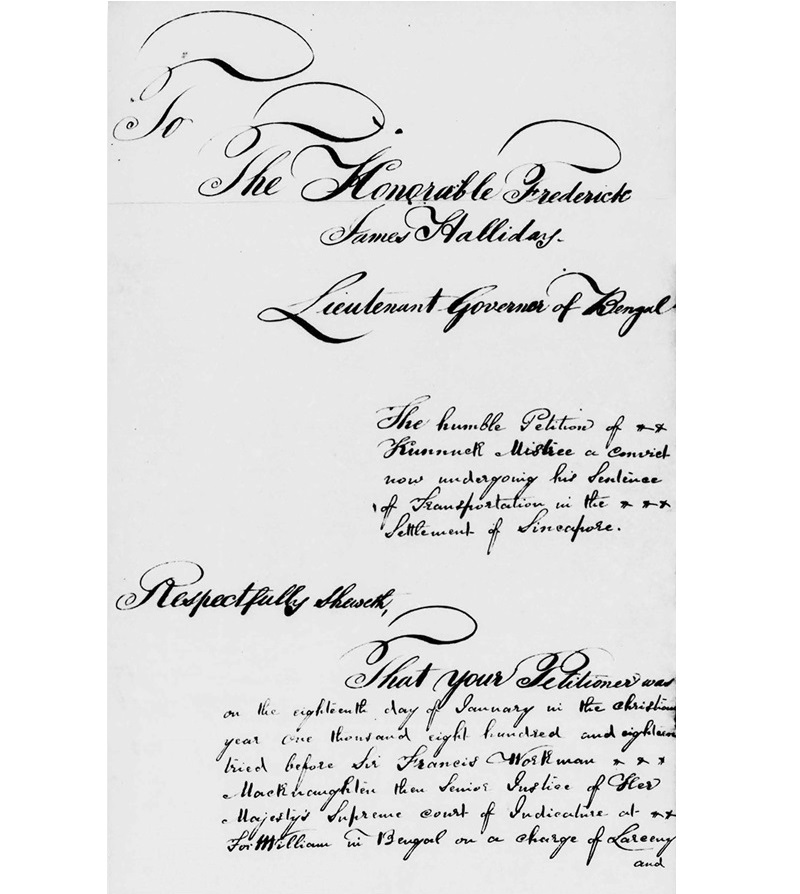 To
The Honorable Frederick
James Halliday.
Lieutenant Governor of Bengal
The humble Petition of **
Kunnuck Mistree a convict
now undergoing his Sentence
of Transportation in the ***
Settlement of Sincapore.
Respectfully sheweth,
That your Petitioner was
on the eighteenth day of January in the christian
year one thousand eight hundred and eighteen
tried before Sir Francis Workman ***
Macknaughten then Senior Justice of Her
Majesty's Supreme court of Judicature at **
Fort William in Bengal on a charge of Larceny
and